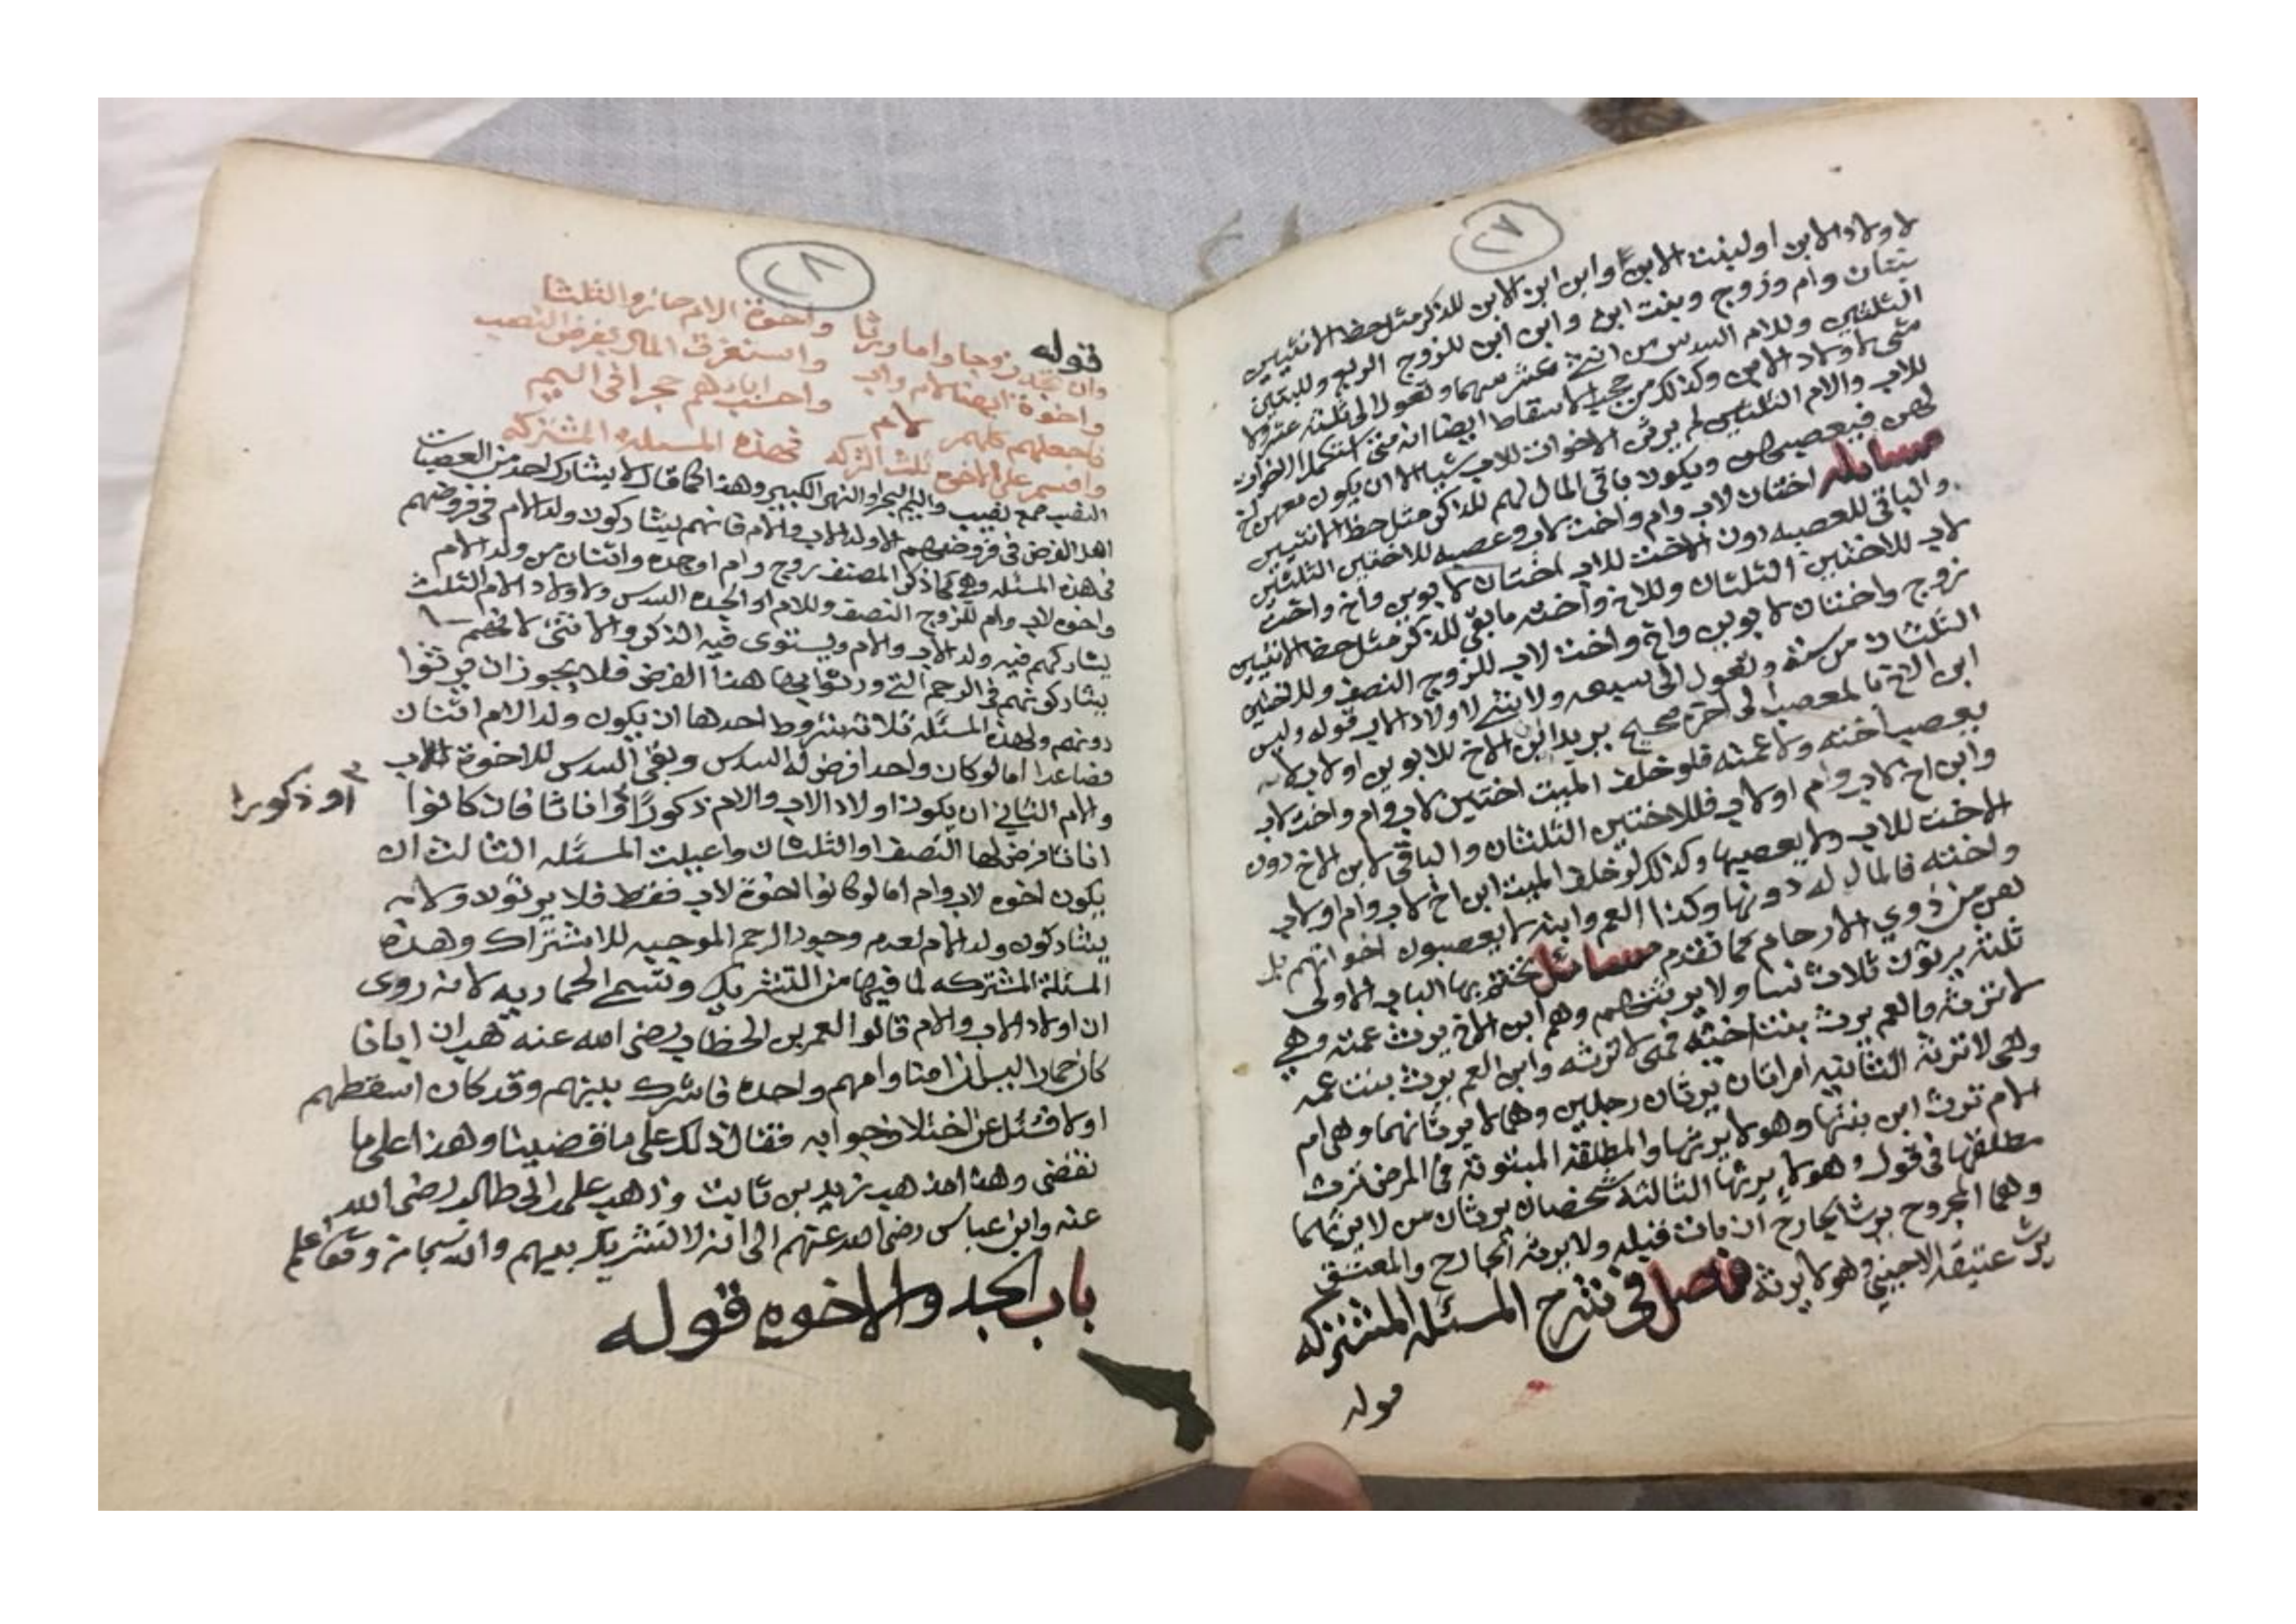 ٢٧
لاولاد الابن اولبنت الابن وابن ابن الابن للذكر مثل حظ الانثيين
بنتان وام وزوج وبنت ابن وابن ابن للزوج الربع وللبنتين
الثلثين وللام السدس من اثنى عشر سهما وتعول الى ثلثة عشر ولا
شى لاولاد الابن وكذلك من حجب الاسقاط ايضا انه متى استكمل الاخوات
للاب والام الثلثين لم يرثن الاخوات للاب شيا الا ان يكون معهن اخ
لهن فيعصبهن ويكون باقى المال لهم للذكر مثل حظ الانثيين
مسايله اختان لاب وام واخت لاب وعصبه للاختين الثلثين
والباقى للعصبه دون الاخت للاب اختان لابوين واخ واخت
لاب للاختين الثلثان وللاخ واخته مابقى للذكر مثل حظ الانثيين
زوج واختان لابوين واخ واخت لاب للزوج النصف وللاختين
الثلثان من سته وتعول الى سبعه ولا شى لاولاد الاب قوله وليس
ابن الاخ بالمعصب لى اخره صحيح يريد ابن الاخ للابوين اولاب لانه
يعصب اخته ولا عمته فلو خلف الميت اختين لاب وام واخت لاب
وابن اخ لاب وام اولاب فللاختين الثلثان والباقى لابن الاخ دون
الاخت للاب ولا يعصبها وكذلك لو خلف الميت ابن اخ لاب وام اولاب
واخته فالمال له دونها وكذا العم وابنه لا يعصبون اخواتهم بل
هن من ذوي الارحام كما تقدم مسائل نختم بها الباب الاولى
ثلثه يرثون ثلاث نسا ولا يرثنهم وهم ابن الاخ يرث عمته وهي
لا ترثه والعم يرث بنت اخيه فهى لا ترثه وابن العم يرث بنت عمه
وهى لا ترثه الثانيه امراتان يرثان رجلين وهما لا يرثانهما وهى ام
الام ترث ابن بنتها وهو لا يرثها والمطلقه المبتوته فى المرض ترث
مطلقها فى قول وهو لا يرثها الثالثه شخصان يرثان من لا يرثهما
وهما المجروح يرث الجارح ان مات قبله ولا يرثه الجارح والمعتق
يرث عتيقه الاجنبي وهو لا يرثه فصل فى شرح المسئله المشتركه
قوله
٢٨
قوله
وان تجد زوجا واما ورثا واخوة الام حازوا الثلثا
واخوة ايضا لام واب واستغرقوا المال بفرض النصب
فاجعلهم كلهم لام واحسب اباهم حجرا فى اليم
واقسم على الاخوة ثلث التركه فهذه المسئلة المشتركه
النصب جمع نصيب واليم البحر او النهر الكبير وهذا كما قال لا يشارك احد من العصبات
اهل الفرض فى فروضهم الا ولد الاب والام فانهم يشاركون ولد الام فى فروضهم
فى هذه المسئله وهي كما ذكر المصنف زوج وام او جده واثنان من ولد الام
واخوه لاب وام للزوج النصف وللام او الجده السدس ولاولاد الام الثلث
يشاركهم فيه ولد الاب والام ويستوى فيه الذكر والانثى لانهم
يشاركونهم فى الرحم التى ورثوا بها هذا الفرض فلا يجوز ان يرثوا
دونهم ولهذه المسئله ثلاثة شروط احدها ان يكون ولد الام اثنان
فصاعدا اما لو كان واحد افرض له السدس وبقى السدس للاخوة للاب
والام الثاني ان يكون اولاد الاب والام ذكورا او اناثا فان كانوا
او ذكورا
اناثا فرض لها النصف او الثلثان واعيلت المسئله الثالث ان
يكون اخوه لاب وام اما لو كانوا اخوة لاب فقط فلا يرثون ولانه
يشاركون ولد الام لعدم وجود الرحم الموجبه للاشتراك وهذه
المسئلة المشتركه لما فيها من التشريك وتسمى الحماريه لانه روى
ان اولاد الاب والام قالوا لعمر بن الخطاب رضى الله عنه هب ان ابانا
كان حمارا اليس امنا وامهم واحدة فاشرك بينهم وقد كان اسقطهم
اولا فسئل عن اختلاف جوابه فقال ذلك على ما قضينا وهذا على ما
نقضى وهذا مذهب زيد بن ثابت وذهب على بن ابى طالب رضى الله
عنه وابن عباس رضى الله عنهم الى انه لا تشريك بينهم والله سبحانه وتعالى اعلم
باب الجد والاخوه قوله